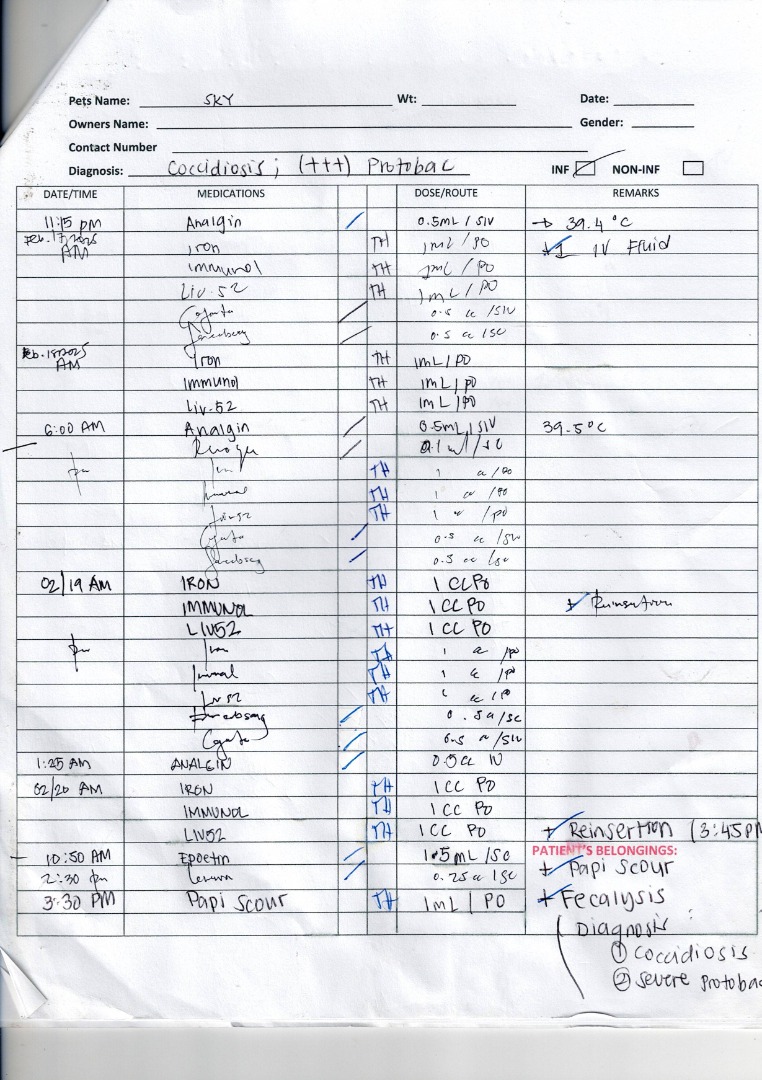 Pets Name: SKY Wt: Date:
Owners Name: Gender:
Contact Number
Diagnosis: Coccidiosis ; (+++) Protobac INF NON-INF
DATE/TIME MEDICATIONS DOSE/ROUTE REMARKS
11:15 pm Analgin 0.5mL / SIV → 39.4 °C
Feb. 17, 2025 AM Iron TH 1mL / PO +1 IV Fluid
Immunol TH 1mL / PO
Liv-52 TH 1mL / PO
0.5 cc /SIV
0.5 cc /SC
Feb. 18, 2025 AM Iron TH 1mL / PO
Immunol TH 1mL / PO
Liv-52 TH 1mL / PO
6:00 AM Analgin 0.5mL / SIV 39.5°C
0.1 ml / SC
pm TH 1 cc /PO
TH 1 cc /PO
TH 1 cc /PO
0.5 cc /SIV
0.5 cc /SC
02/19 AM IRON TH 1 CC PO
IMMUNOL TH 1 CC PO + Reinsertion
LIV52 TH 1 CC PO
pm Iron TH 1 cc /PO
TH 1 cc /PO
Liv 52 TH 1 cc /PO
0.5 cc /SC
0.5 cc /SIV
1:25 AM ANALGIN 0.5cc IV
02/20 AM IRON TH 1 CC PO
IMMUNOL TH 1 CC PO
LIV52 TH 1 CC PO + Reinsertion (3:45PM
PATIENT'S BELONGINGS:
10:50 AM Epoetin 1.5mL /SC + Papi Scour
2:30 pm 0.25 cc /SC
3:30 PM Papi Scour TH 1mL / PO + Fecalysis
Diagnosis :
① Coccidiosis
② Severe Protobac